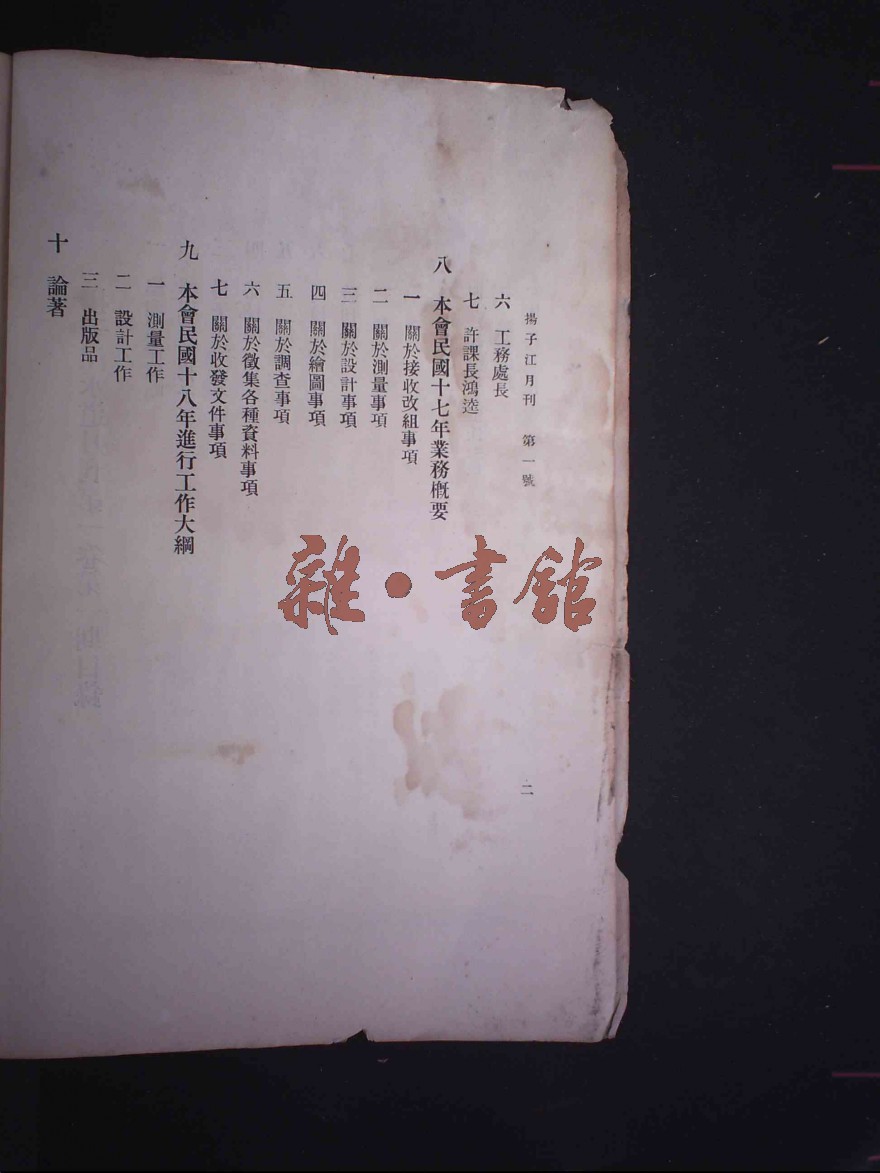 揚子江月刊 第一號 二
六 工務處長
七 許課長鴻逵
八 本會民國十七年業務槪要
一 關於接收改組事項
二 關於測量事項
三 關於設計事項
四 關於繪圖事項
五 關於調查事項
六 關於徵集各種資料事項
七 關於收發文件事項
九 本會民國十八年進行工作大綱
一 測量工作
二 設計工作
三 出版品
十 論著
雜·書館